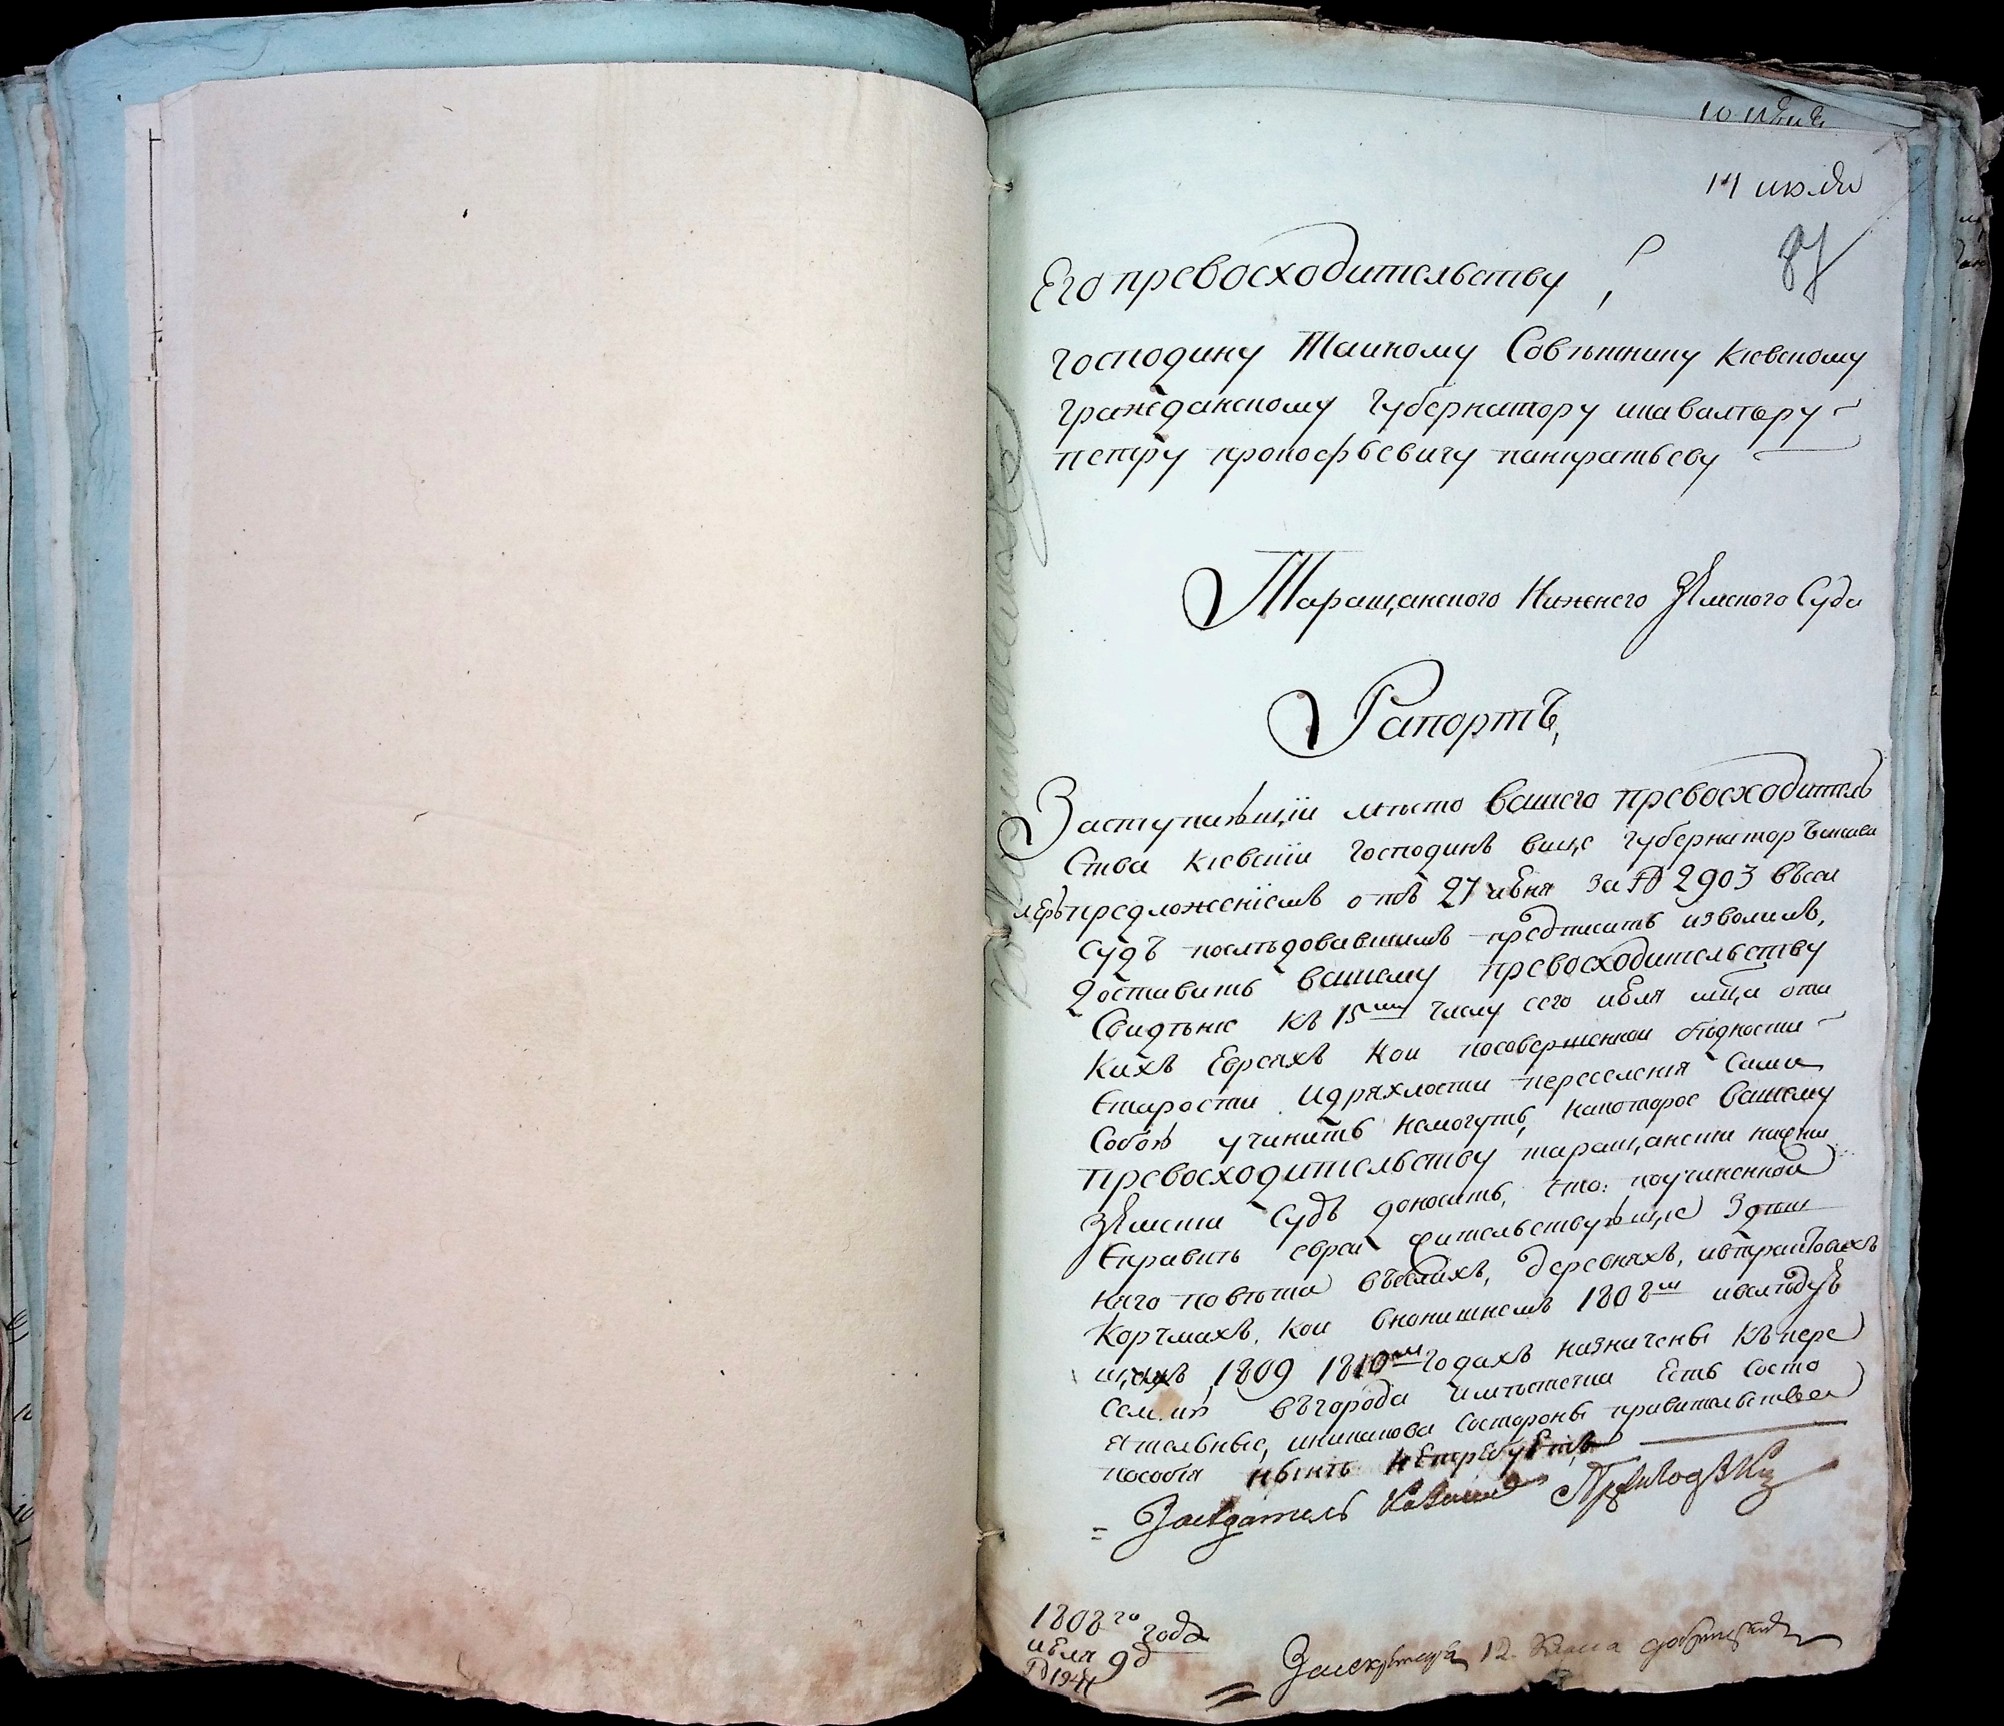 14 июля
87
Его превосходительству
господину Тайному Советнику Киевскому
гражданскому губернатору икавалеру
петру прокофьевичу панкратьеву
Таращанского Нижнего Земского Суда
Рапортъ,
Заступившїи место вашего превосходитель
Ства Киевскїи господинъ вице губернаторъ икава
леръ предложенїемъ отъ 27 июня за № 2903 въсеи
Судъ последовавшимъ предписать изволилъ,
Доставить вашему превосходительству
Сведение къ 15му числу сего июля мца ота
Кихъ Евреяхъ кои посовершенной бедности
Старости идряхлости переселения Сами
Собою учинить немогутъ, накоторое вашему
превосходительству таращанскии нижни
Земскии Судъ доноситъ, что: поучиненной
Справке евреи жительствующие Здеш
няго повета въселахъ, деревняхъ, ивтрактовыхъ
Корчмахъ, кои внонишнемъ 1808м ивследую
щихъ 1809 1810м годахъ назначены къпере
Селению въгорода иместечка Есть Состо
ятельные, иникакова состороны правительства
пособия ныне нетребуетъ
Заседатель Приходзки
1808го года
июля 9 д
№ 1941